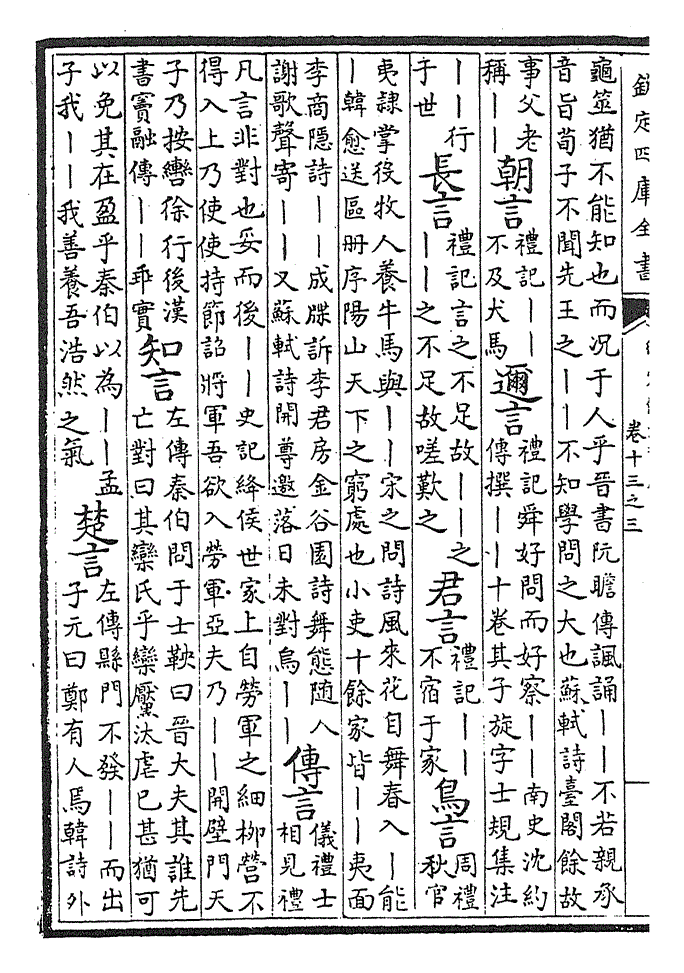 欽定四庫全書
卷十三之三
龜筮猶不能知也而况于人乎晉書阮瞻傳諷誦丨丨不若親承
音旨荀子不聞先王之丨丨不知學問之大也蘇軾詩臺閣餘故
事父老
稱丨丨
朝言
禮記丨丨
不及犬馬
邇言
禮記舜好問而好察丨丨南史沈約
傳撰丨丨十卷其子旋字士規集注
丨丨行
于世
長言
禮記言之不足故丨丨之
丨丨之不足故嗟歎之
君言
禮記丨丨
不宿于家
鳥言
周禮
秋官
夷隷掌役牧人養牛馬與丨丨宋之問詩風來花自舞春入丨能
丨韓愈送區册序陽山天下之窮處也小吏十餘家皆丨丨夷面
李商隱詩丨丨成諜訴李君房金谷園詩舞態随人
謝歌聲寄丨丨又蘇軾詩開尊邀落日未對烏丨丨
傳言
儀禮士
相見禮
凡言非對也妥而後丨丨史記絳侯世家上自勞軍之細柳營不
得入上乃使使持節詔將軍吾欲入勞軍亞夫乃丨丨開壁門天
子乃按轡徐行後漢
書竇融傳丨丨乖實
知言
左傳秦伯問于士鞅曰晉大夫其誰先
亡對曰其欒氏乎欒黶汰虐已甚猶可
以免其在盈乎秦伯以為丨丨孟
子我丨丨我善養吾浩然之氣
楚言
左傳縣門不發丨丨而出
子元曰鄭有人焉韓詩外